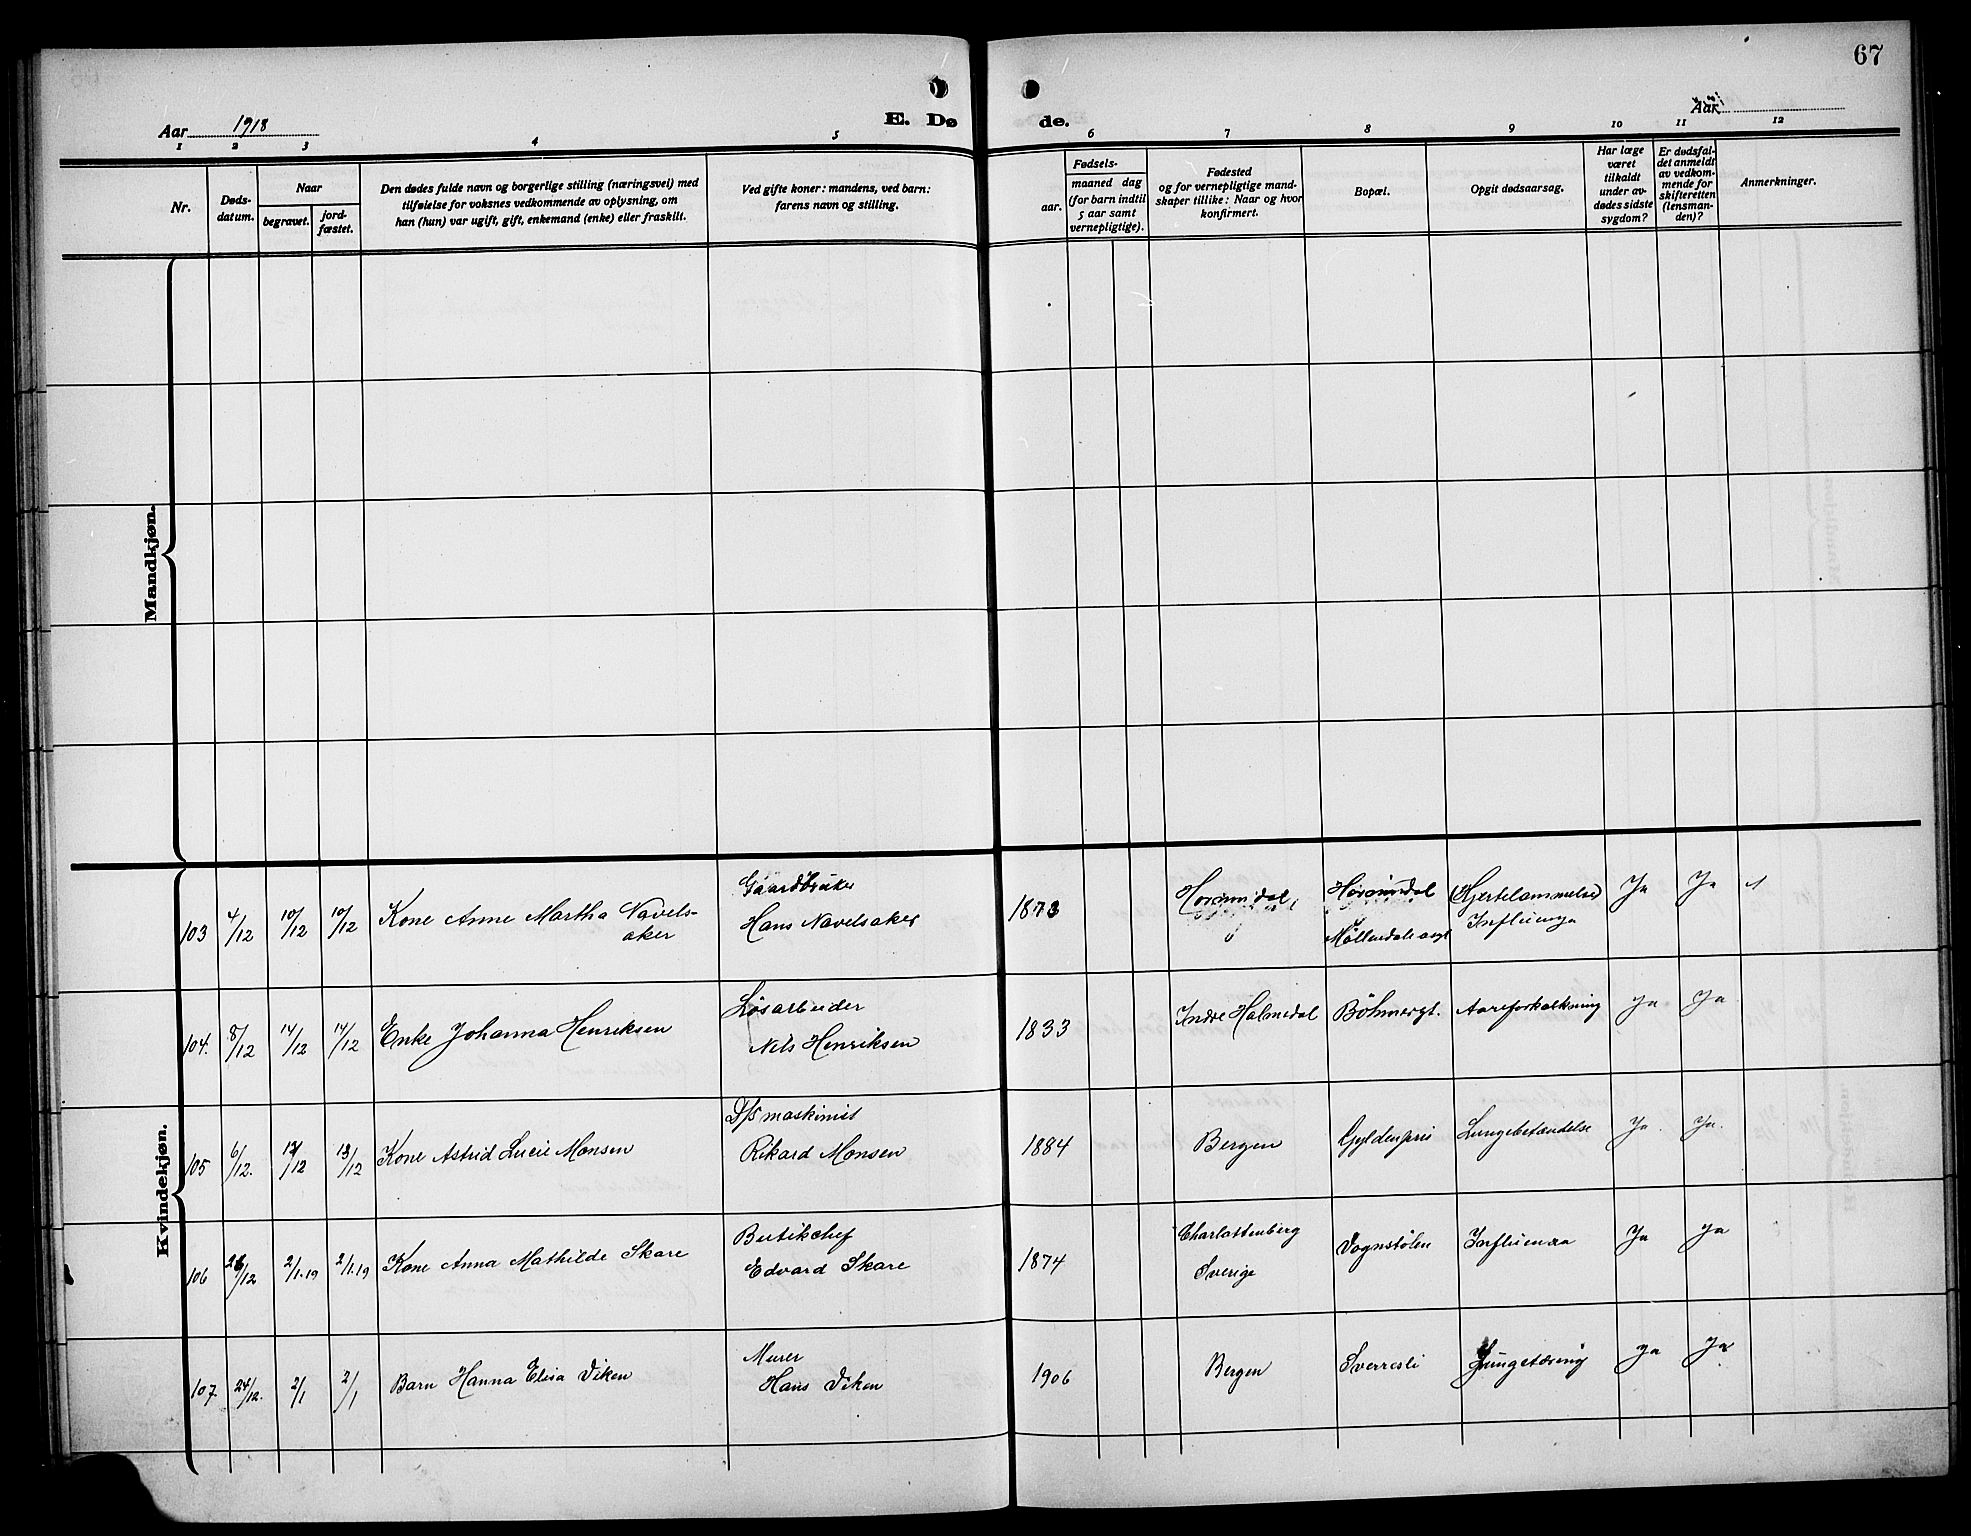 67
Aar 1918
E. Dø
de.
Aar
1 2 3 4 5 6 7 8 9 10 11 12
Nr.
Døds-
datum.
Naar
begravet.
jord-
fæstet.
Den dødes fulde navn og borgerlige stilling (næringsvei) med
tilføielse for voksnes vedkommende av oplysning, om
han (hun) var ugift, gift, enkemand (enke) eller fraskilt.
Ved gifte koner: mandens, ved barn:
farens navn og stilling.
Fødsels-
aar.
maaned dag
(for barn indtil
5 aar samt
vernepligtige).
Fødested
og for vernepligtige mand-
skaper tillike: Naar og hvor
konfirmert.
Bopæl.
Opgit dødsaarsag.
Har læge
været
tilkaldt
under av-
dødes sidste
sygdom?
Er dødsfal-
det anmeldt
av vedkom-
mende for
skifteretten
(lensman-
den)?
Anmerkninger.
Mandkjøn.
Kvindekjøn.
103 4/12 10/12 10/12 Kone Anne Martha Navels-
aker
Gaardbruker
Hans Navelsaker
1873
Hornindal
Hornindal
Möllendalsvegt
Hjertelammelse
Influenza
Ja Ja
104. 8/12 14/12 14/12 Enke Johanna Henriksen
Løsarbeider
Nils Henriksen
1833 Indre Holmedal Böhmergt. Aareforkalkning Ja Ja
105 6/12. 12/12 13/12 Kone Astrid Lucie Monsen
D/s maskinist
Rikard Monsen
1884 Bergen Gyldenpris Lungebetændelse Ja. Ja.
106 26/12 2/1.19 2/1.19 Kone Anna Mathilde Skare
Butikchef
Edvard Skare
1874 Charlottenberg
Sverige
Vognstølen Influenza Ja Ja
107. 24/12. 2/1 2/1 Barn Hanna Elisa Viken
Murer
Hans Viken
1906 Bergen Sverresli Lungetæring Ja Ja